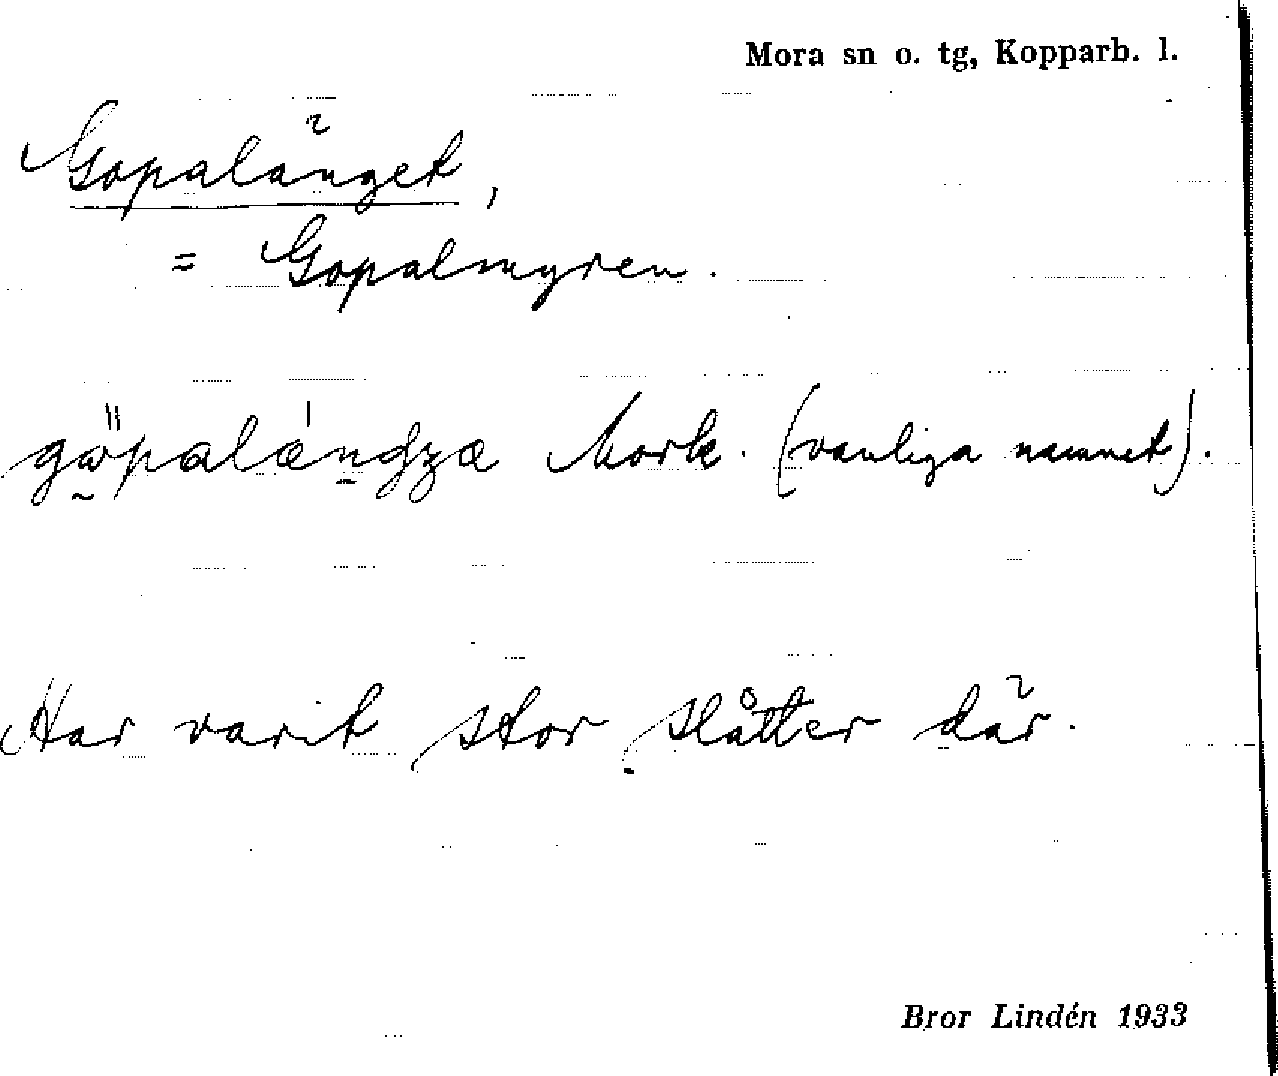 Mora sn o. tg, Kopparb. l.
Gopalänget,
= Gopalmyren.
Mork. (vanliga namnet).
Har varit stor slåtter där.
Bror Lindén 1933